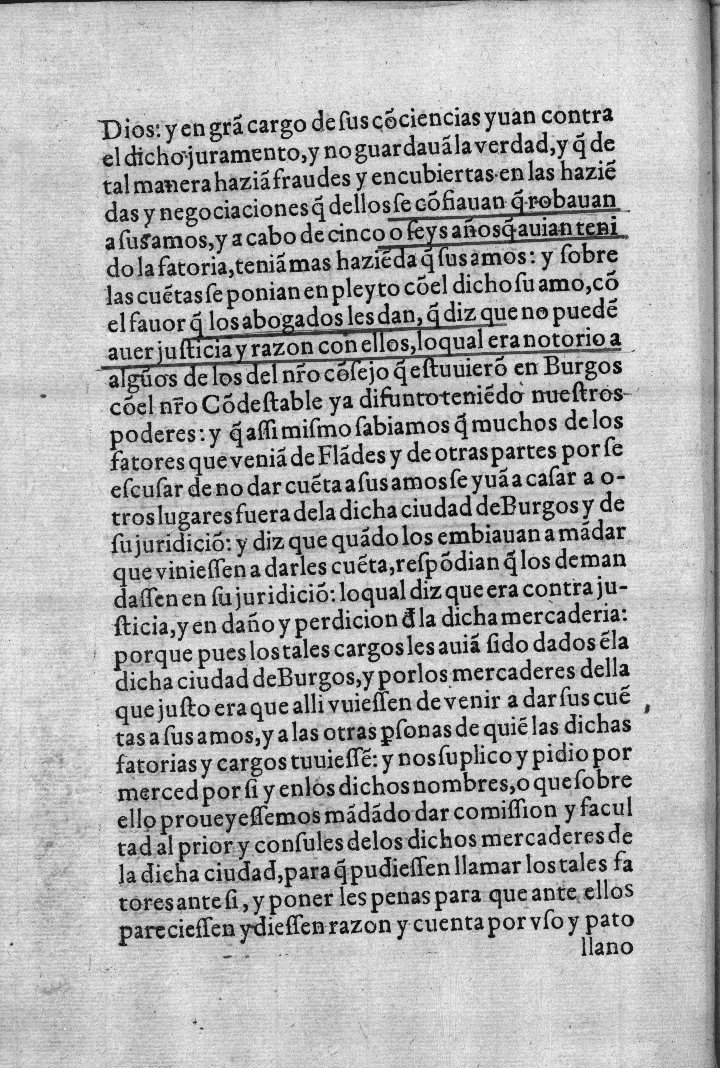 Dios: y en grã cargo de ſus cõciencias yuan contra
el dicho juramento, y no guardauã la verdad, y q̃ de
tal manera haziã fraudes y encubiertas en las haziẽ
das y negociaciones q̃ dellos ſe cõfiauan q̃ robauan
a ſus amos, y a cabo de cinco o ſeys años q̃ auian teni
do la fatoria, teniã mas haziẽda q̃ ſus amos: y ſobre
las cuẽtas ſe ponian en pleyto cõel dicho ſu amo, cõ
el fauor q̃ los abogados les dan, q̃ diz que no puedẽ
auer juſticia y razon con ellos, lo qual era notorio a
algũos de los del nr̃o cõſejo q̃ eſtuuierõ en Burgos
cõel nr̃o Cõdeſtable ya difunto teniẽdo nueſtros
poderes: y q̃ aſſi miſmo ſabiamos q̃ muchos de los
fatores que veniã de Flãdes y de otras partes por ſe
eſcuſar de no dar cuẽta a ſus amos ſe yuã a caſar a o-
tros lugares fuera dela dicha ciudad de Burgos y de
ſu juridiciõ: y diz que quãdo los embiauan a mãdar
que vinieſſen a darles cuẽta, reſpõdian q̃ los deman
daſſen en ſu juridiciõ: lo qual diz que era contra ju-
ſticia, y en daño y perdicion đ la dicha mercaderia:
porque pues los tales cargos les auiã ſido dados ẽla
dicha ciudad de Burgos, y por los mercaderes della
que juſto era que alli vuieſſen de venir a dar ſus cuẽ
tas a ſus amos, y a las otras ꝑſonas de quiẽ las dichas
fatorias y cargos tuuieſſẽ: y nos ſuplico y pidio por
merced por ſi y en los dichos nombres, o que ſobre
ello proueyeſſemos mãdãdo dar comiſſion y facul
tad al prior y conſules delos dichos mercaderes de
la dicha ciudad, para q̃ pudieſſen llamar los tales fa
tores ante ſi, y poner les penas para que ante ellos
parecieſſen y dieſſen razon y cuenta por vſo y pato
llano